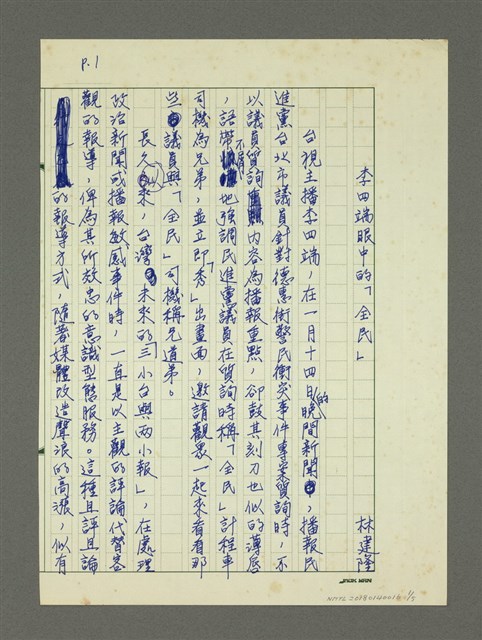 P.1
李四端眼中的「全民」
林建隆
台視主播李四端，在一月十四日的晚間新聞，播報民
進黨台北市議員針對德惠街警民衝突事件專案質詢時，不
以議員質詢內容為播報重點，卻鼓其刻刀也似的薄唇
，語帶不屑地強調民進黨議員在質詢時稱「全民」計程車
司機為兄弟，並立即「秀」出畫面，邀請觀眾一起來看看那
些議員與「全民」司機稱兄道弟。
長久以來，台灣未來的「三小台與兩小報」，在處理
政治新聞或播報敏感事件時，一直是以主觀的評論代替客
觀的報導，俾為其所效忠的意識型態服務。這種且評且論
的報導方式，隨著媒體改造聲浪的高漲，似有
JINN WAN
NMTL20080140016 1/5